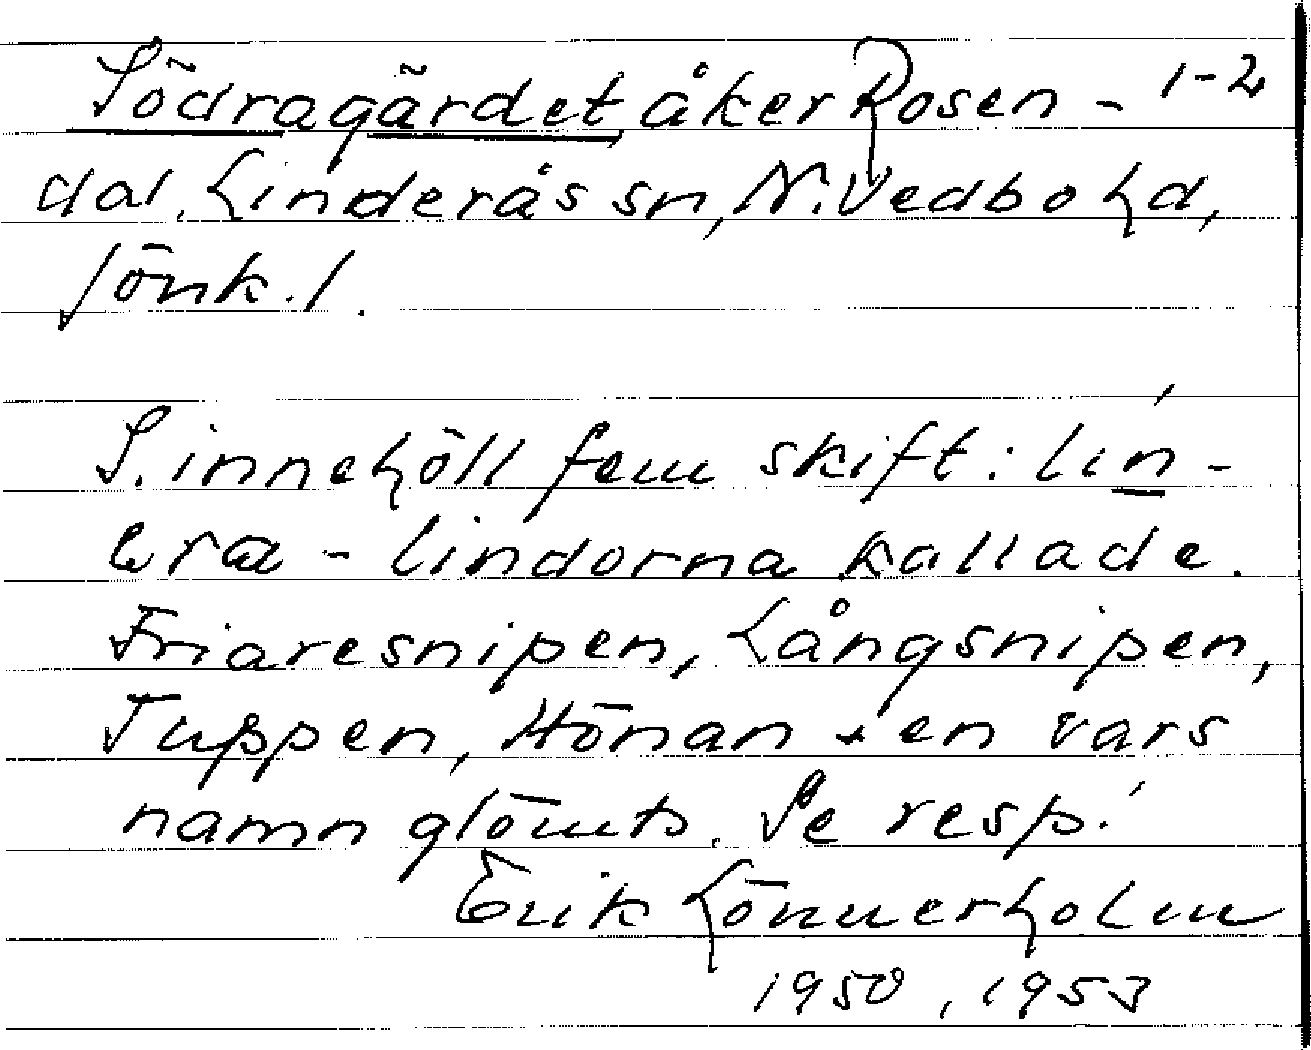 Södragärdet åker Rosen- 1-2
dal, Linderås sn, N. Vedbo hd,
Jönk. l.
S. innehöll fem skift: lin-
dræ - lindorna kallade.
Friaresnipen, Långsnipen,
Tuppen, Hönan + en vars
namn glömts. Se resp.!
Erik Lönnerholm
1950, 1953